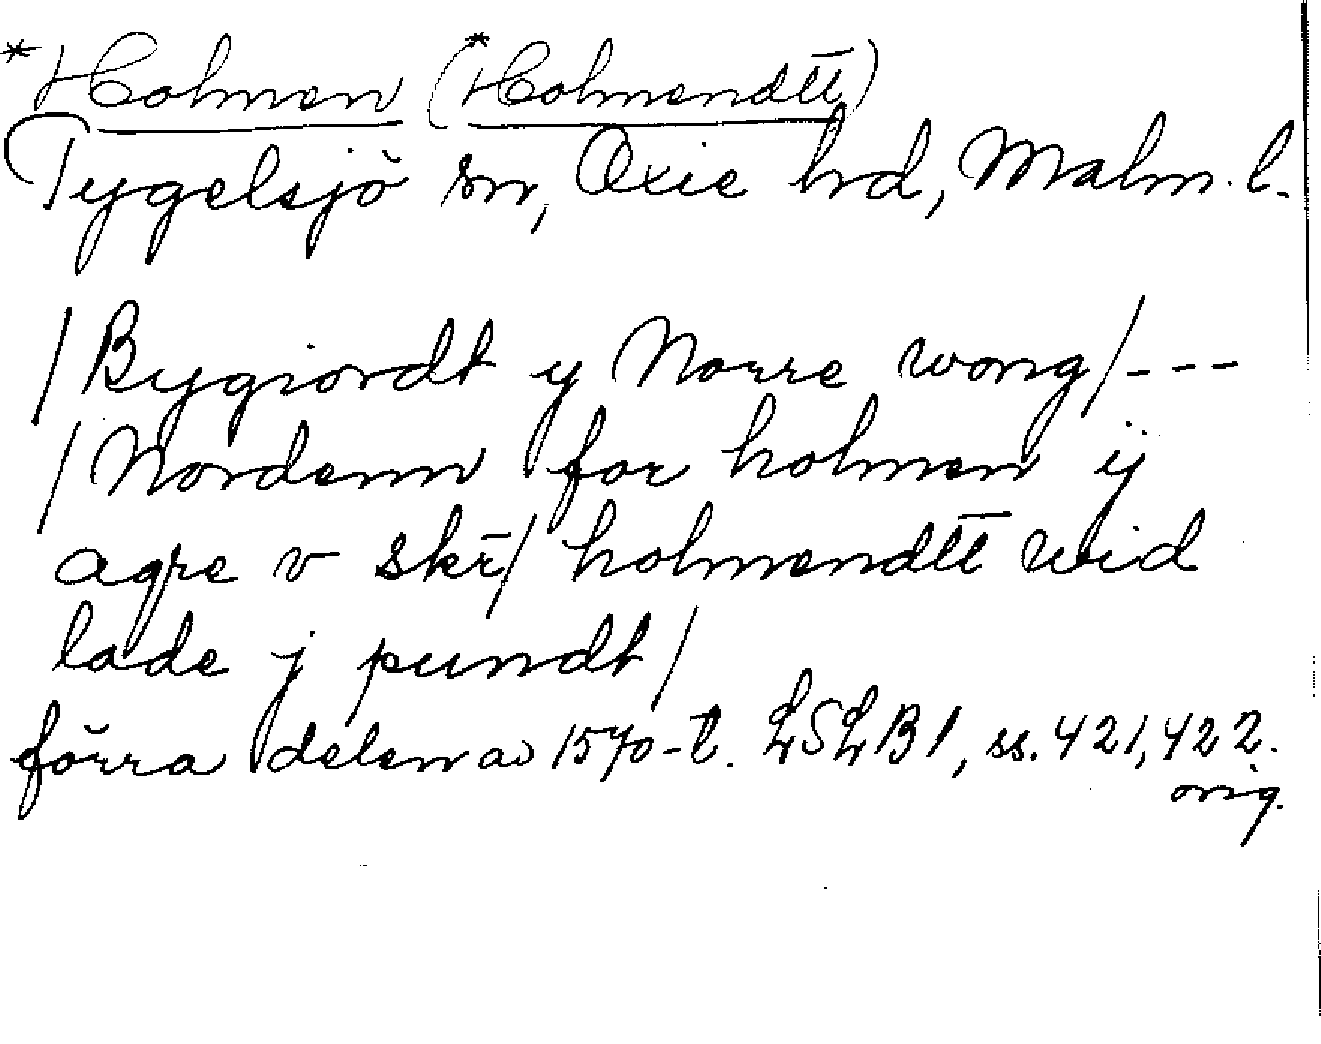 *Holmen (*Holmendtt̄)
Tygelsjö sn, Oxie hd, Malm. l.
/Bygiordt y Norre wong/---
/Nordenn for holmen ij
agre v skr̄/ holmendtt̄ wid
lade j pundt/
förra delen av 1570-t. LSLB1, ss. 421, 422.
orig.